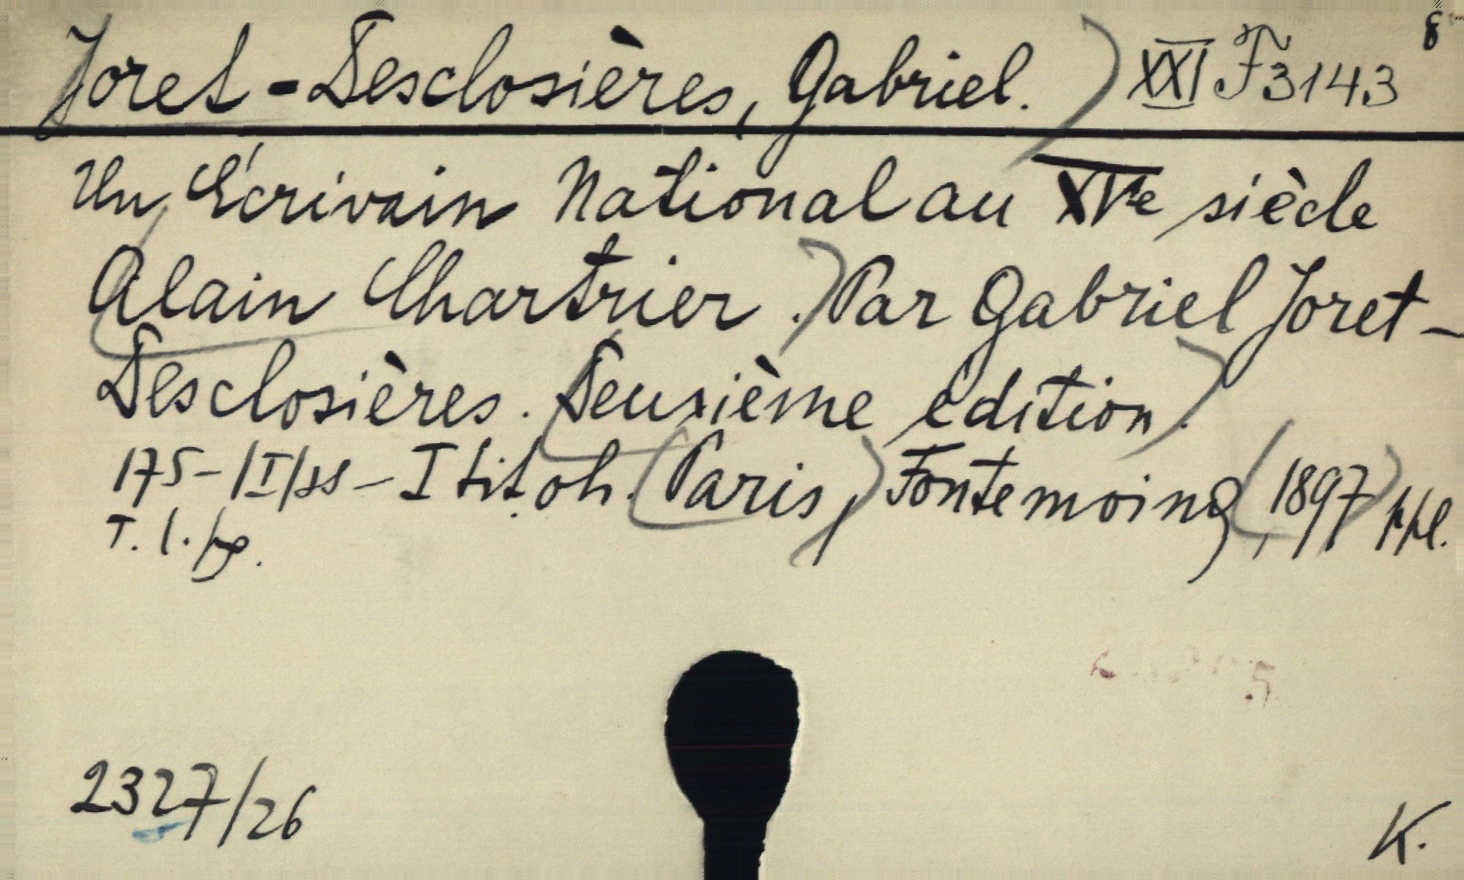 Joret-Desclosières, Gabriel. XXI F3143 8
Un Écrivain National au XVe siècle
Alain Chartrier. Par Gabriel Joret-
Desclosières. Deuxième édition.
175-/I/ss-I tit.oh. Paris, Fontemoing, 1897 ppl.
T. l. pp.
2327/26
K.